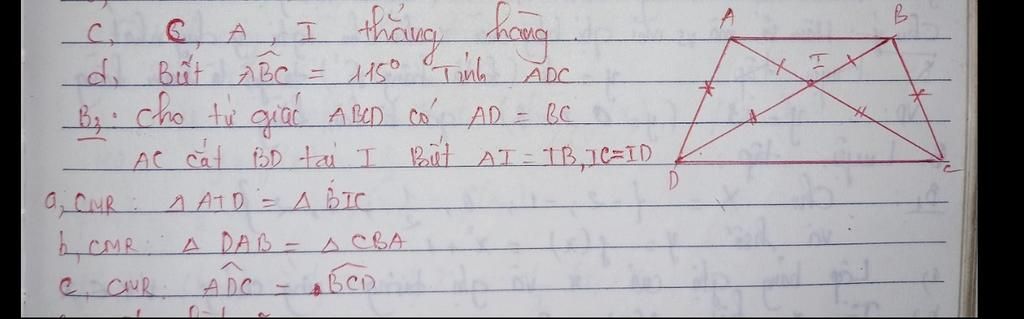 c, C, A, I thẳng hàng.
d, Biết ABC = 115° Tính ADC
B3: Cho tứ giác ABCD có AD = BC
AC cắt BD tại I Biết AI = IB, IC = ID
a, CMR: Δ AID = Δ BIC
b, CMR: Δ DAB = Δ CBA
c, CMR: ADC = BCD
A
B
I
D
C